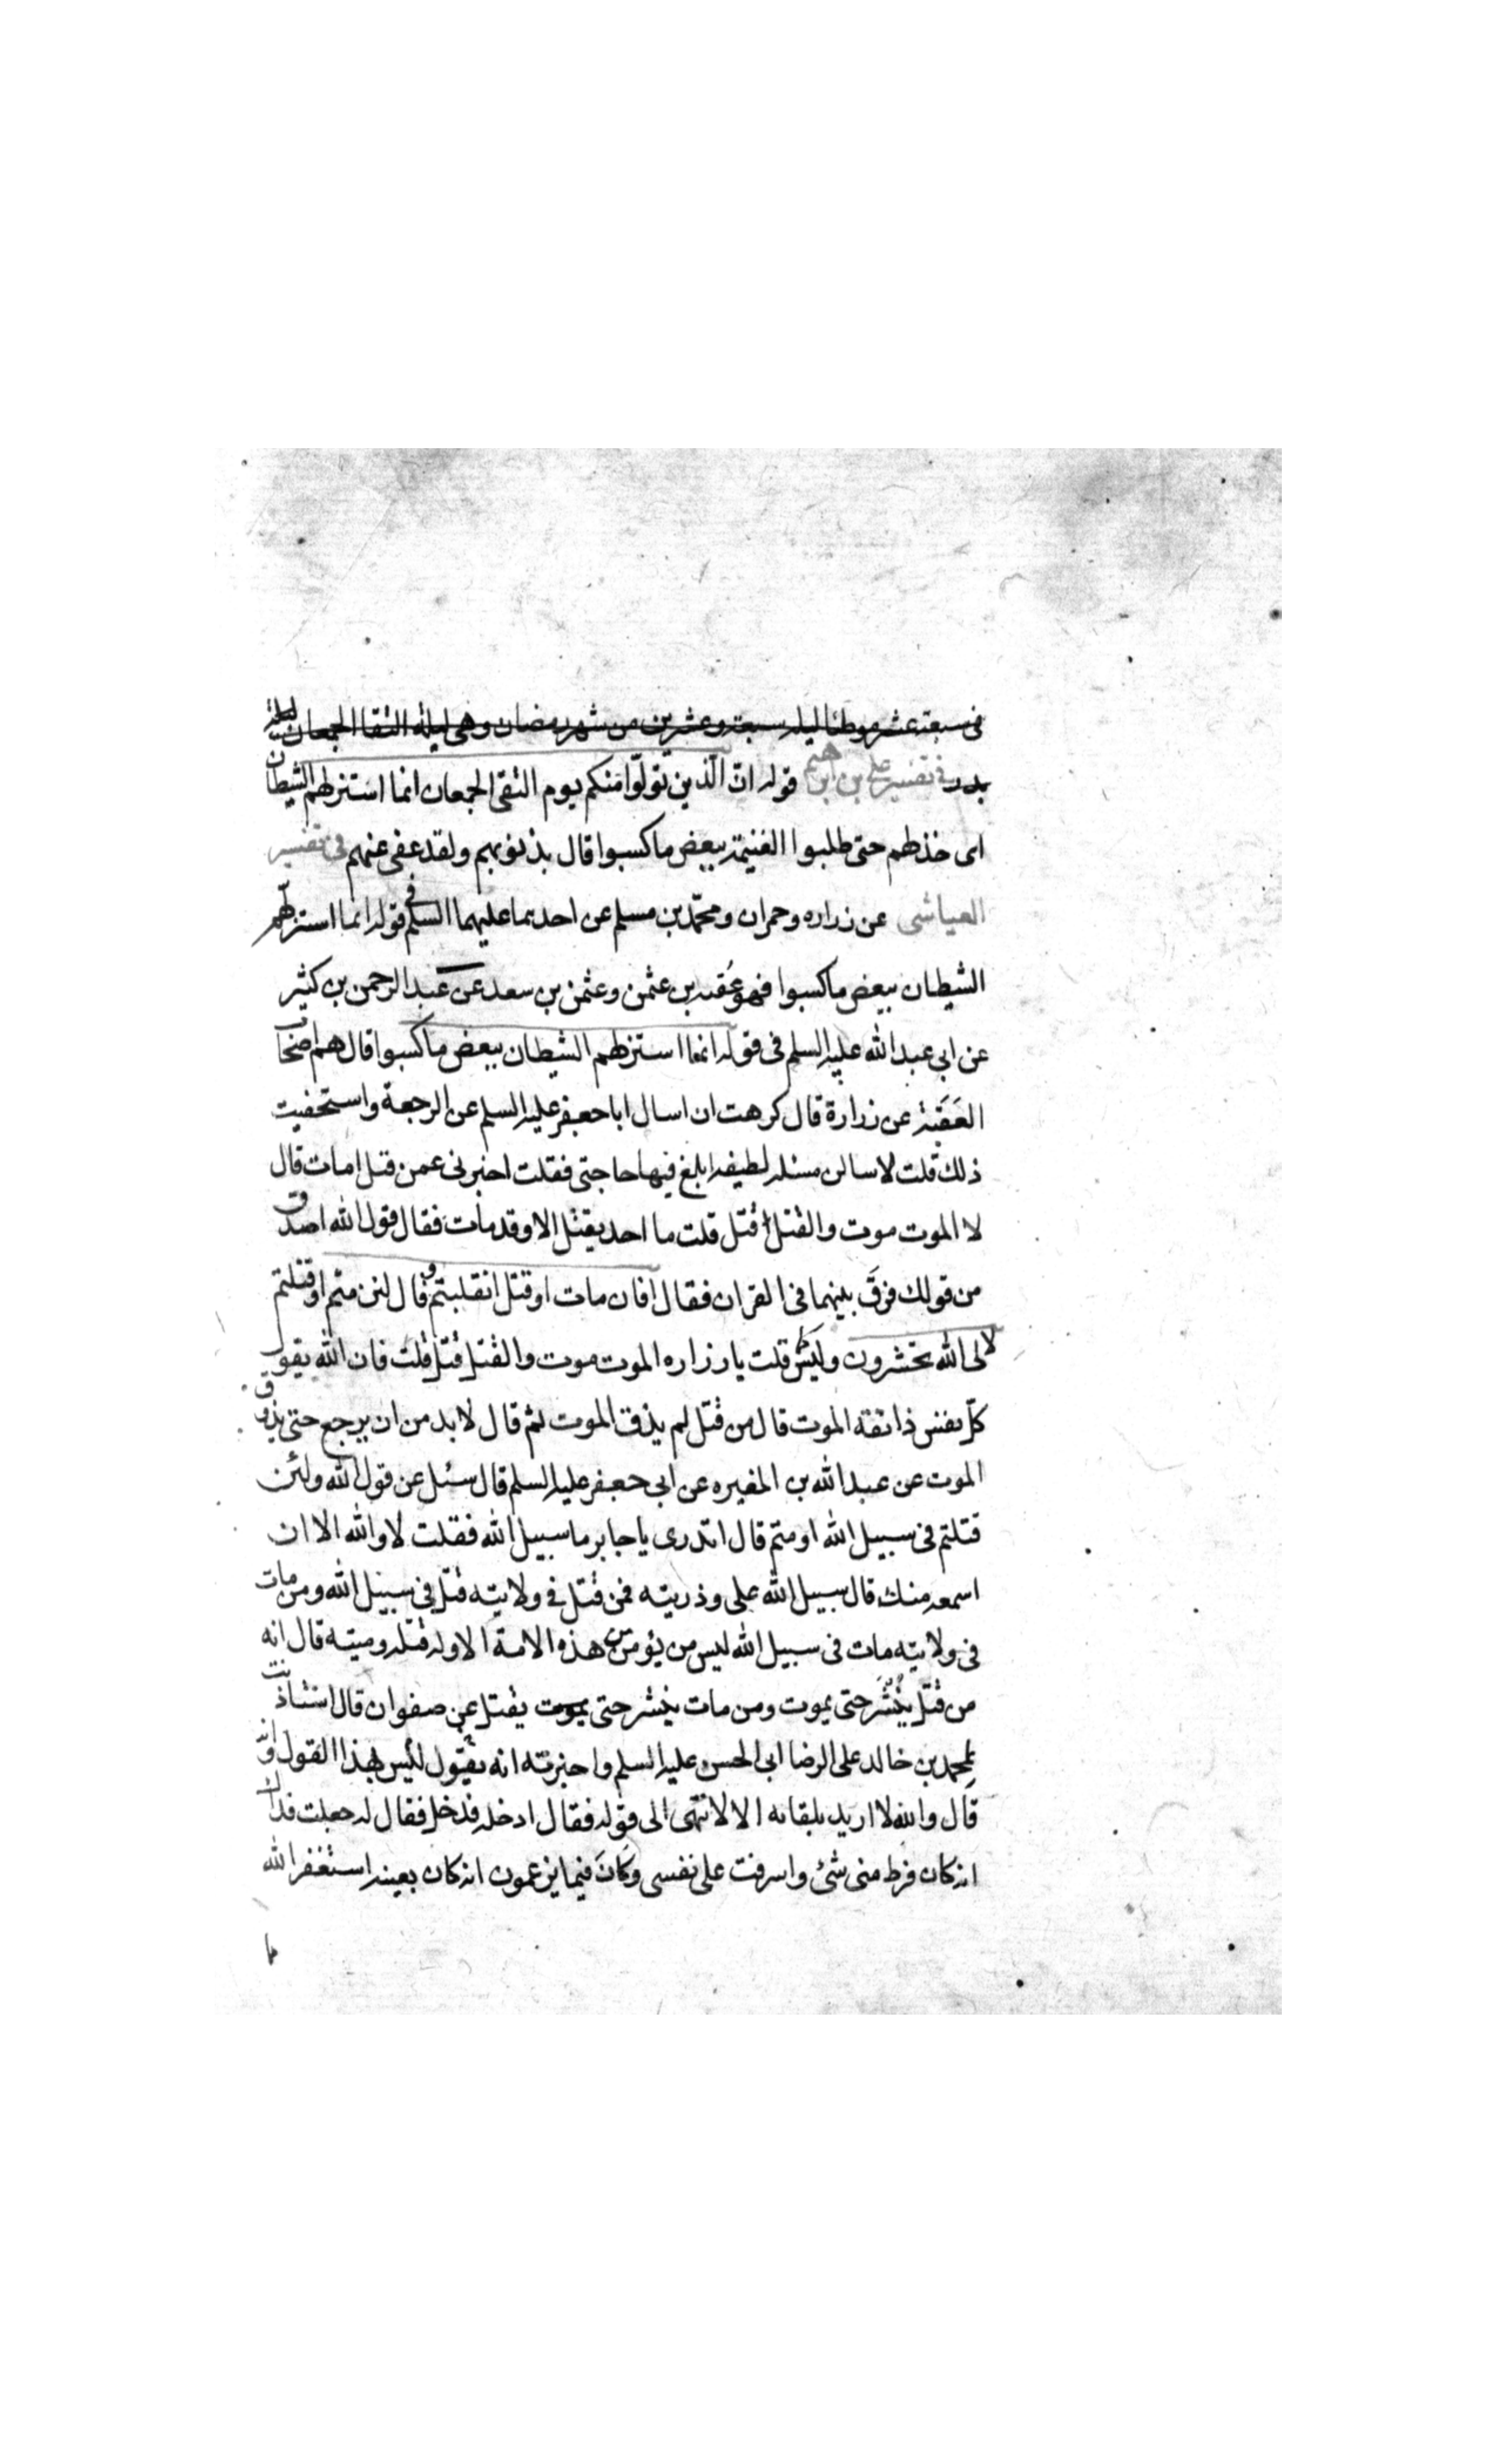 في سبعة عشر موطنا ليلة سبعة وعشرين من شهر رمضان وهى ليلة التقا الجمعان ليلة
بدر في تفسير علي بن ابرهيم قوله انّ الّذين تولّوا منكم يوم التقى الجمعان انما استزلهم الشيطان
اى خذلهم حتى طلبوا الغنيمة ببعض ما كسبوا قال بذنوبهم ولقد عفى عنهم في تفسير
العياشى عن زراره وحمران ومحمّد بن مسلم عن احدهما عليهما السلم في قوله انما استزلّهم
الشيطان ببعض ما كسبوا فهو عُقبه بن عثمن وعثمن بن سعد عن عبد الرحمن بن كثير
عن ابى عبد الله عليه السلم فى قوله انما استزلهم الشيطان ببعض ما كسبوا قال هم اصحاب
العَقَبَة عن زرارة قال كرهت ان اسال ابا جعفر عليه السلم عن الرجعة واستخفيت
ذلك قلت لاسالن مسئله لطيفه ابلغ فيها حاجتى فقلت اخبرنى عمن قتل امات قال
لا الموت موت والقتل قتل قلت ما احد يقتل الا وقد مات فقال قول الله اصدق
من قولك فرّقَ بينهما فى القران فقال افان مات او قتل انقلبتم وقال لئن متم او قتلتم
لالى الله تحشرون وليس كما قلت يا زراره الموت موت والقتل قتل قلت فان الله يقول
كلّ نفس ذائقه الموت قال من قتل لم يذق الموت ثم قال لا بد من ان يرجع حتى يذوق
الموت عن عبد الله بن المغيره عن ابى جعفر عليه السلم قال سئل عن قول الله ولئن
قتلتم فى سبيل الله او متم قال اتدرى يا جابر ما سبيل الله فقلت لا والله الا ان
اسمعه منك قال سبيل الله على وذريته فمن قتل فى ولايته قتل فى سبيل الله ومن مات
فى ولايته مات فى سبيل الله ليس من يؤمن من هذه الامة الا وله قتله وميته قال انه
من قتل ينشر حتى يموت ومن مات ينشر حتى يموت يقتل عن صفوان قال استاذنت
لمحمد بن خالد على الرضا ابى الحسن عليه السلم واخبرته انه يقول ليس بهذا القول وانه
قال والله لا اريد بلقائه الا لانتهى الى قوله فقال ادخله فدخل فقال له جعلت فداك
انه كان فرط منى شئ واسرفت على نفسى وكانَ فيما يزعمون انه كان بعينه استغفر الله